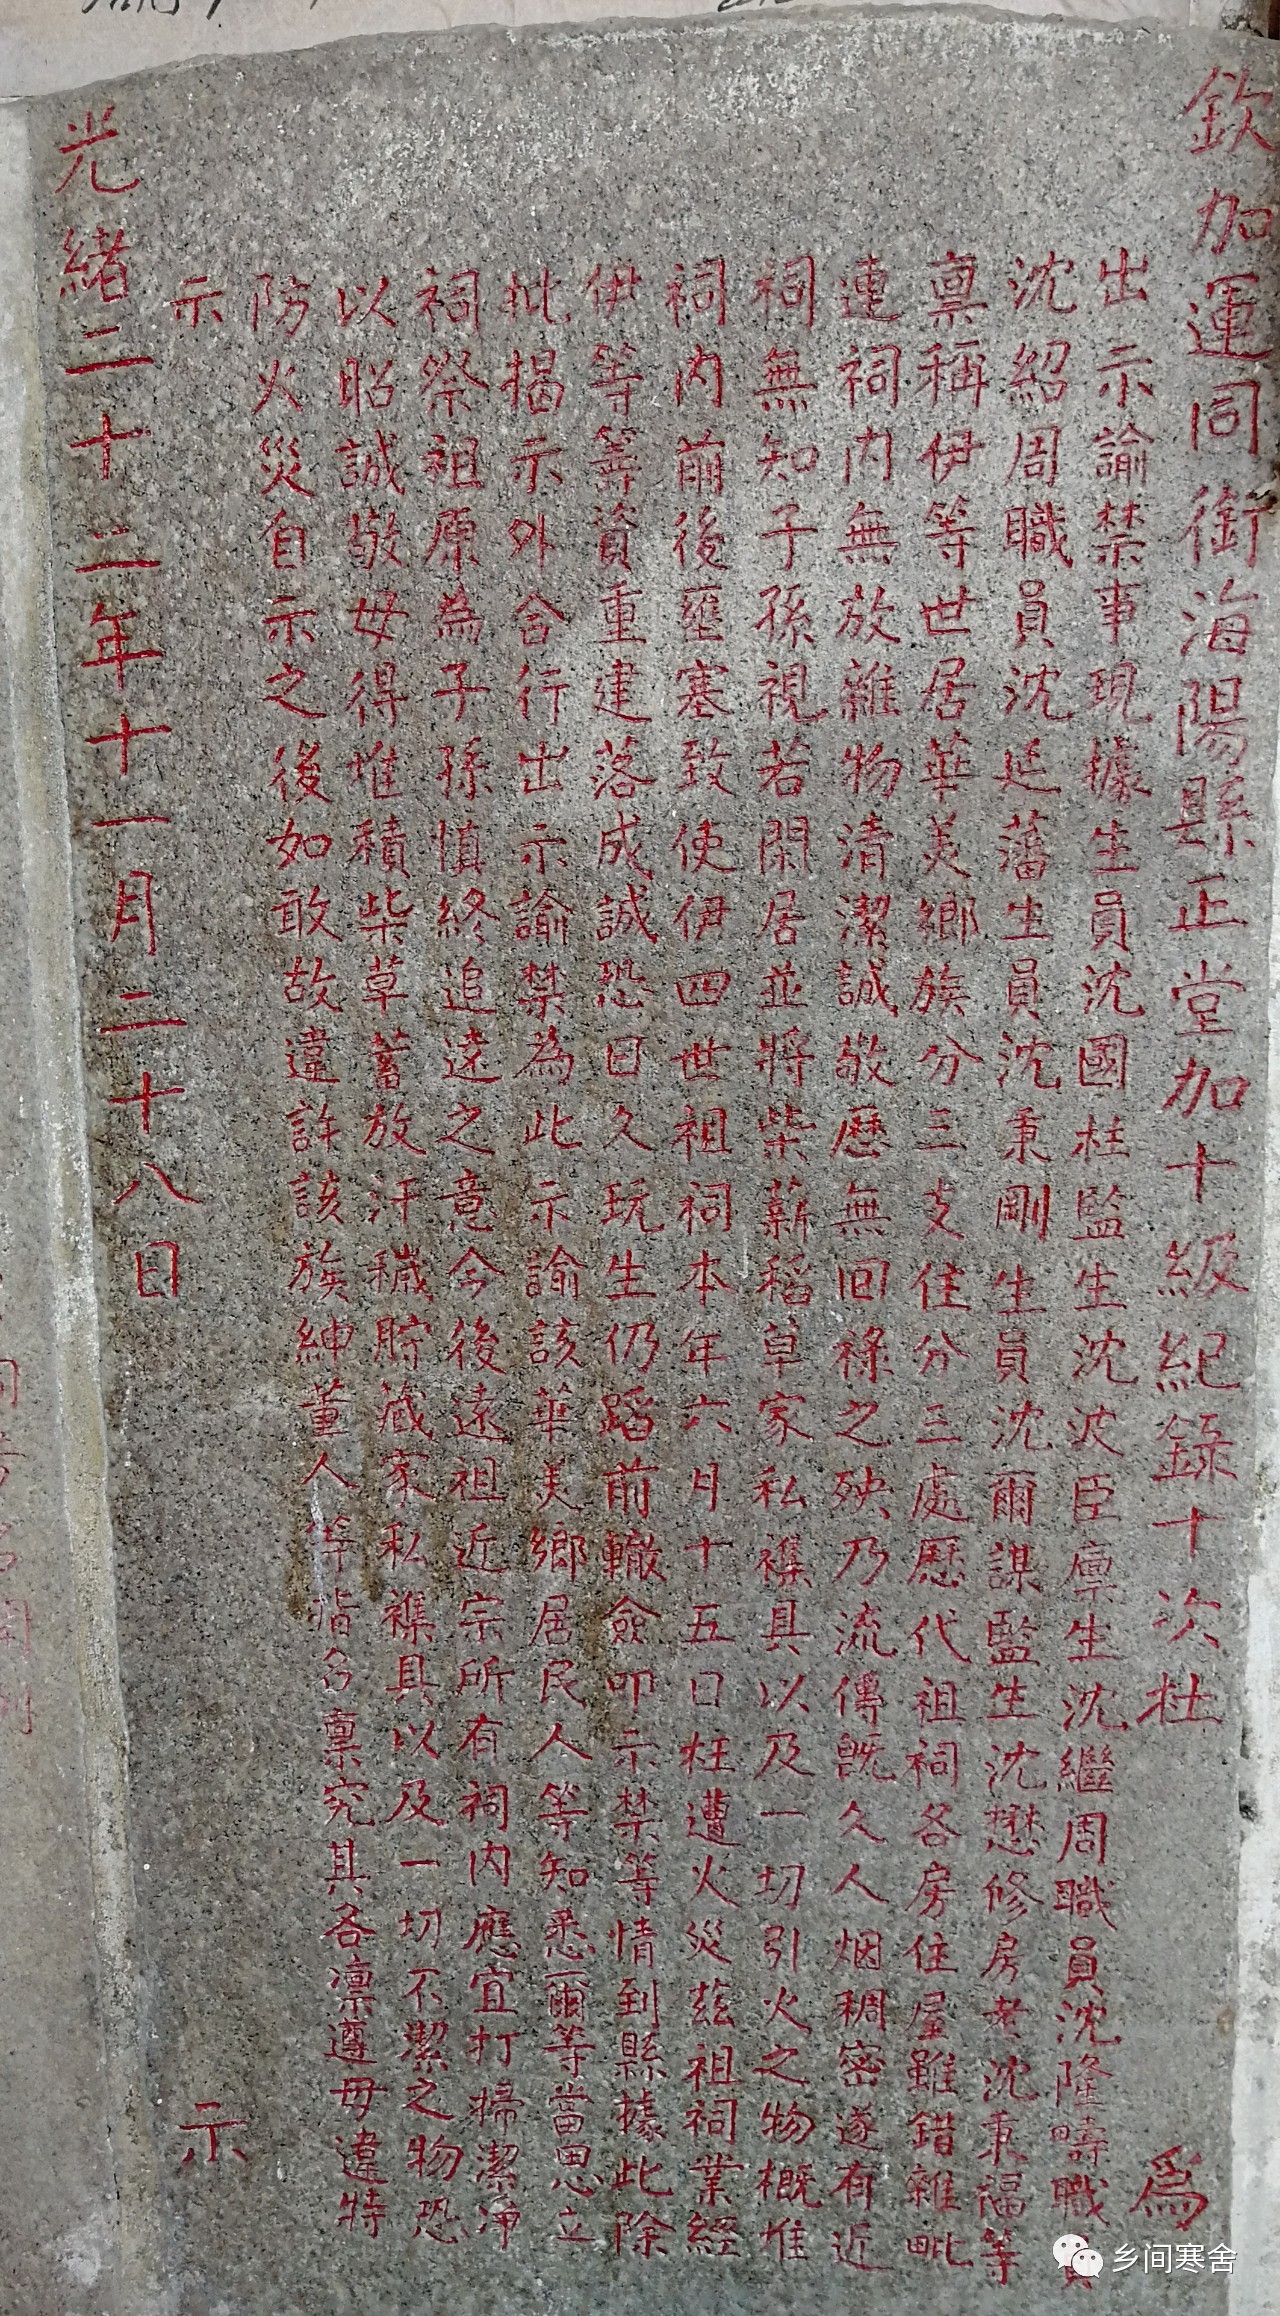 欽加運同銜海陽縣正堂加十級紀錄十次杜 為
出示諭禁事現據生員沈國柱監生沈波臣廩生沈繼周職員沈隆疇職員
沈紹周職員沈延藩生員沈秉剛生員沈爾謀監生沈懋修房耆沈秉福等
稟稱伊等世居華美鄉族分三支住分三處歷代祖祠各房住屋雖錯雜毗
連祠內無放雜物清潔誠敬歷無回祿之殃乃流傳既久人烟稠密遂有近
祠無知子孫視若閑居並將柴薪稻草家私襍具以及一切引火之物概堆
祠內前後壅塞致使伊四世祖祠本年六月十五日枉遭火災茲祖祠業經
伊等籌資重建落成誠恐日久玩生仍蹈前轍僉叩示禁等情到縣據此除
批揭示外合行出示諭禁為此示諭該華美鄉居民人等知悉爾等當思立
祠祭祖原為子孫慎終追遠之意今後遠祖近宗所有祠內應宜打掃潔淨
以昭誠敬毋得堆積柴草蓄放汙穢貯藏家私襍具以及一切不潔之物恐
防火災自示之後如敢故違許該族紳董人等指名稟究其各凛遵毋違特
示
光緒二十二年十一月二十八日 示
乡间寒舍